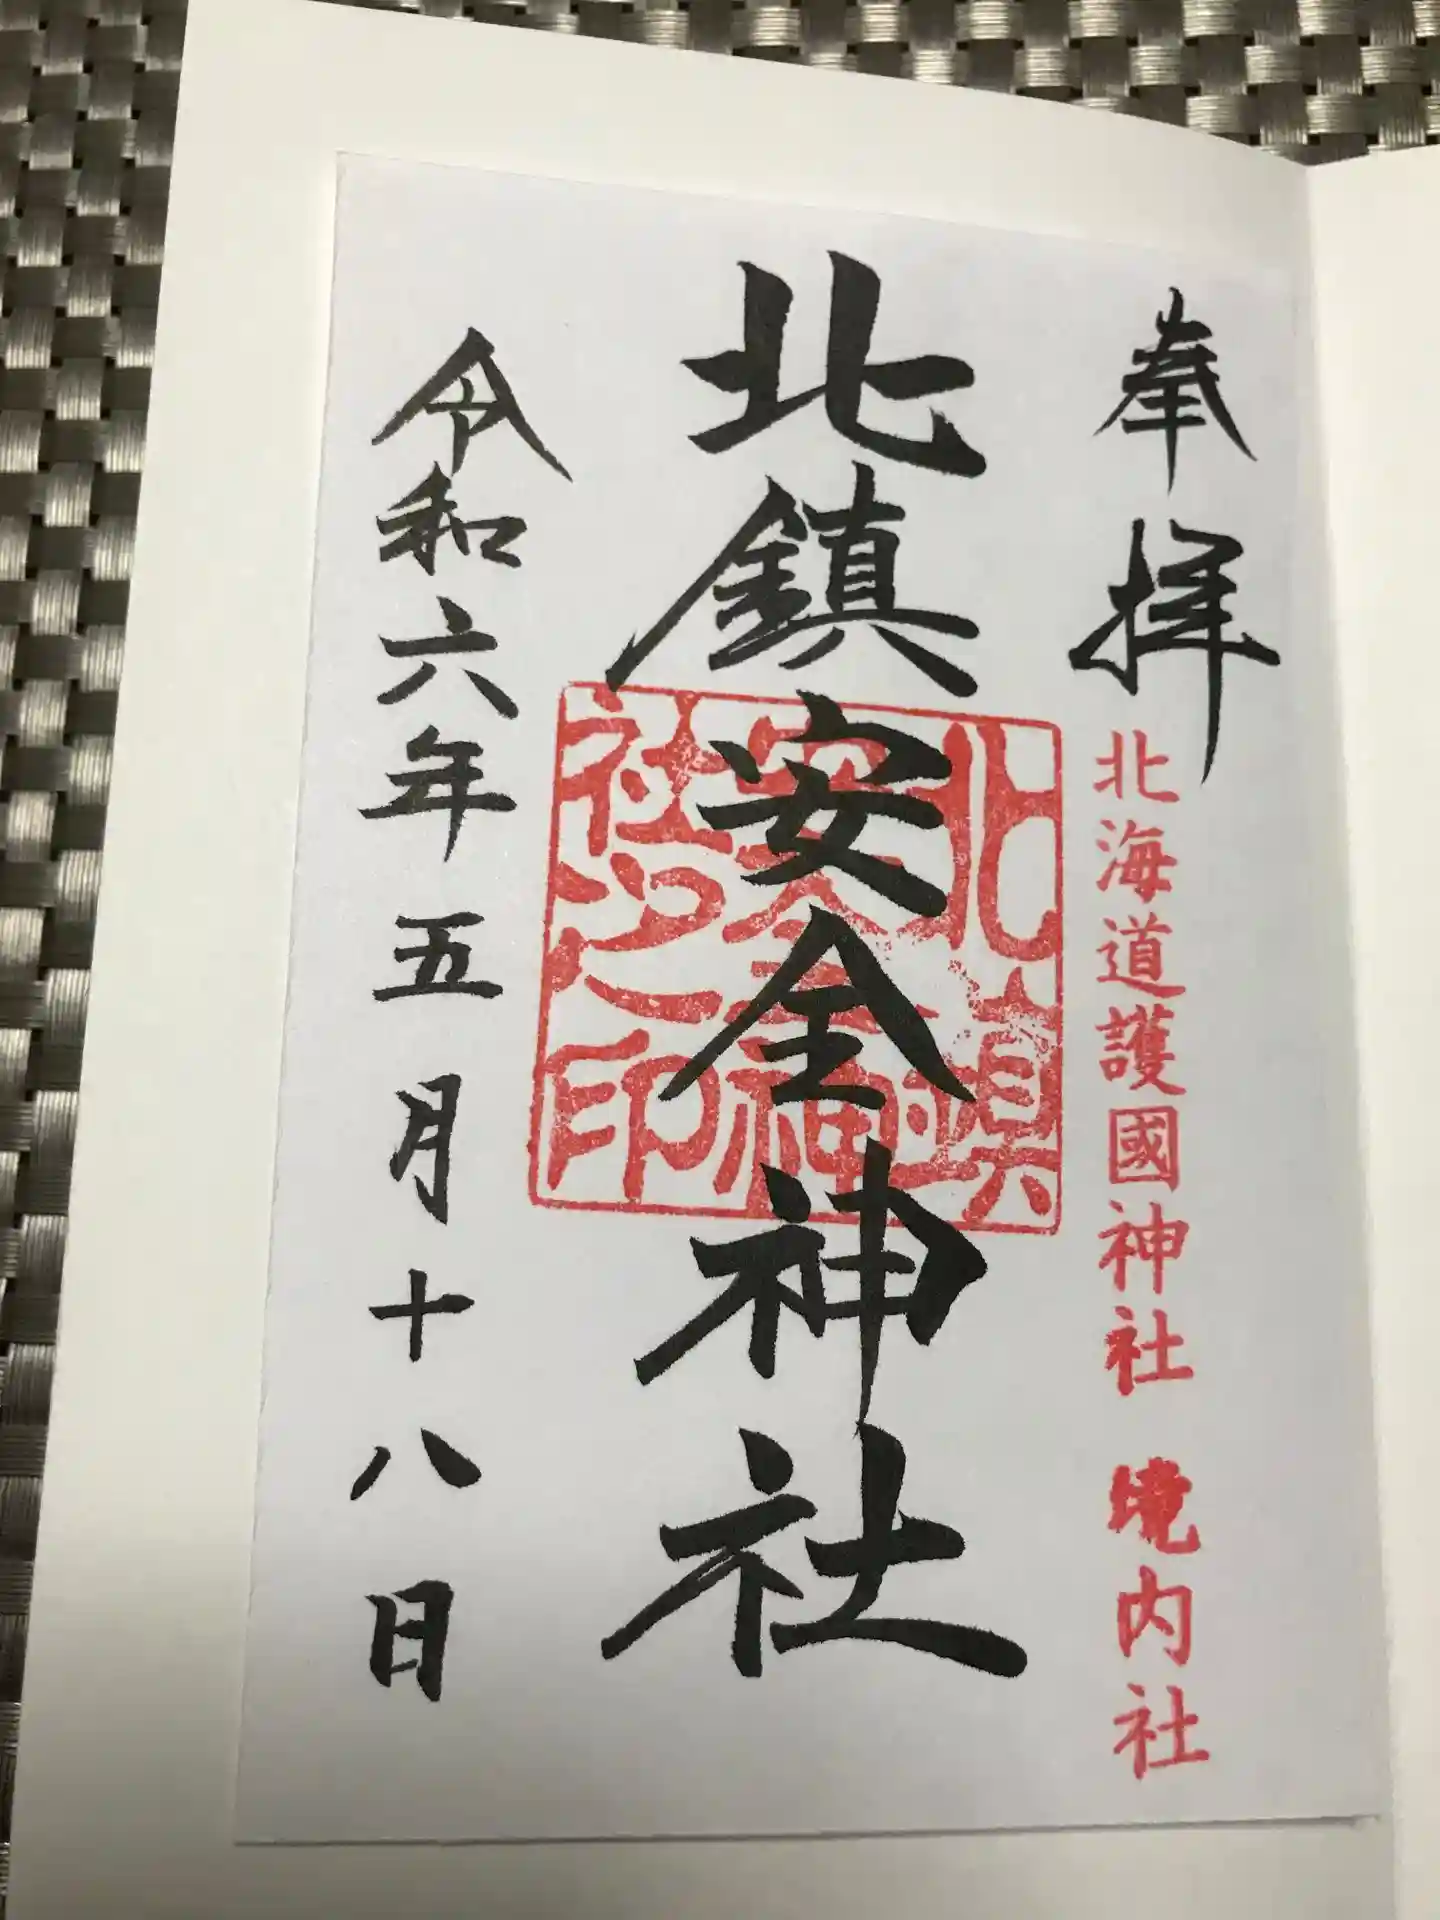 奉拝
北海道護國神社 境内社
北鎮安全神社
北鎮
安全神
社之印
令和六年五月十八日